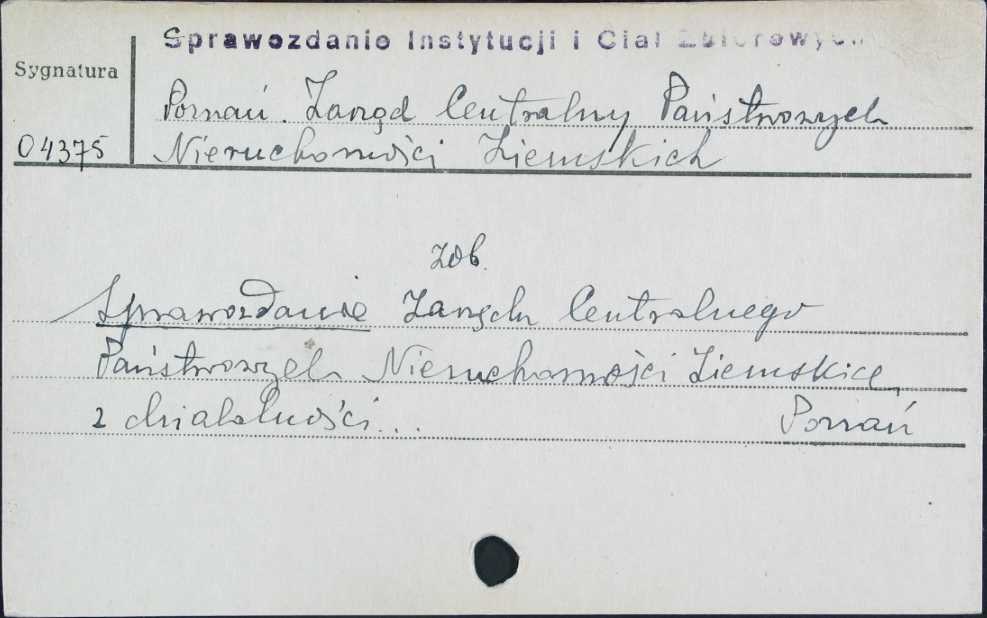 Sprawozdanie Instytucji i Ciał Zbiorowych
Sygnatura
Poznań. Zarząd Centralny Państwowych
04375 Nieruchomości Ziemskich
zob.
Sprawozdanie Zarządu Centralnego
Państwowych Nieruchomości Ziemskich
z działalności... Poznań